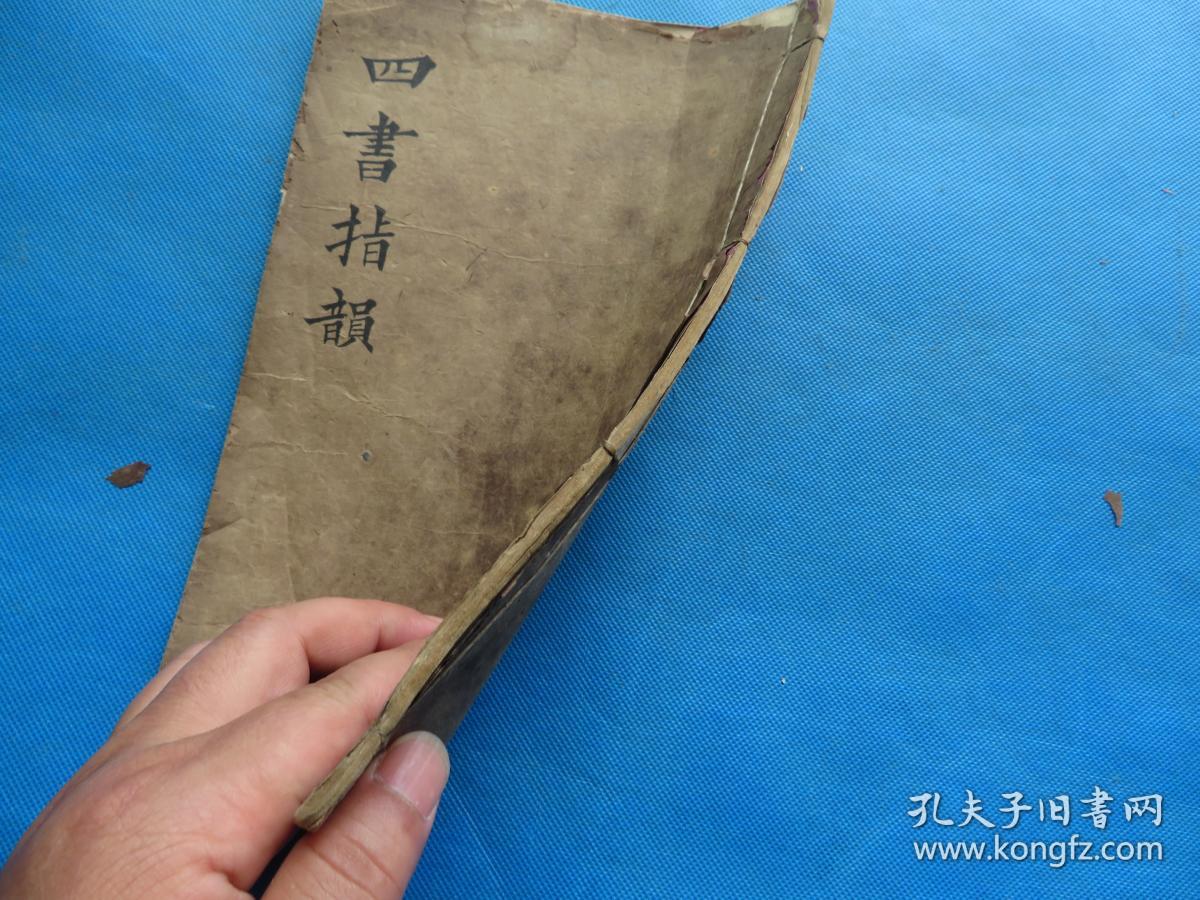 四書指韻
孔夫子旧書网
www.kongfz.com